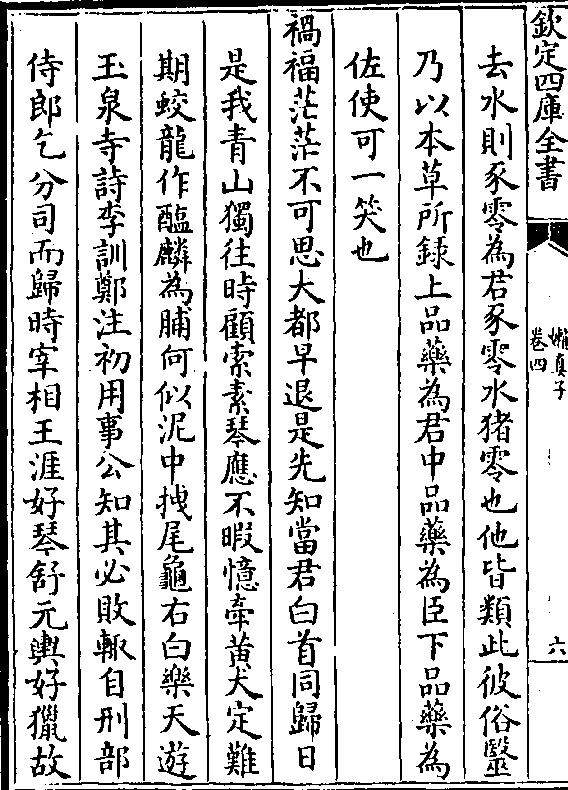 欽定四庫全書
嬾真子
卷四
六
去水則豕零為君豕零水猪零也他皆類此彼俗毉
乃以本草所録上品藥為君中品藥為臣下品藥為
佐使可一笑也
禍福茫茫不可思大都早退是先知當君白首同歸日
是我青山獨往時顧索素琴應不暇憶牽黄犬定難
期蛟龍作醢麟為脯何似泥中拽尾龜右白樂天遊
玉泉寺詩李訓鄭注初用事公知其必敗輙自刑部
侍郎乞分司而歸時宰相王涯好琴舒元輿好獵故